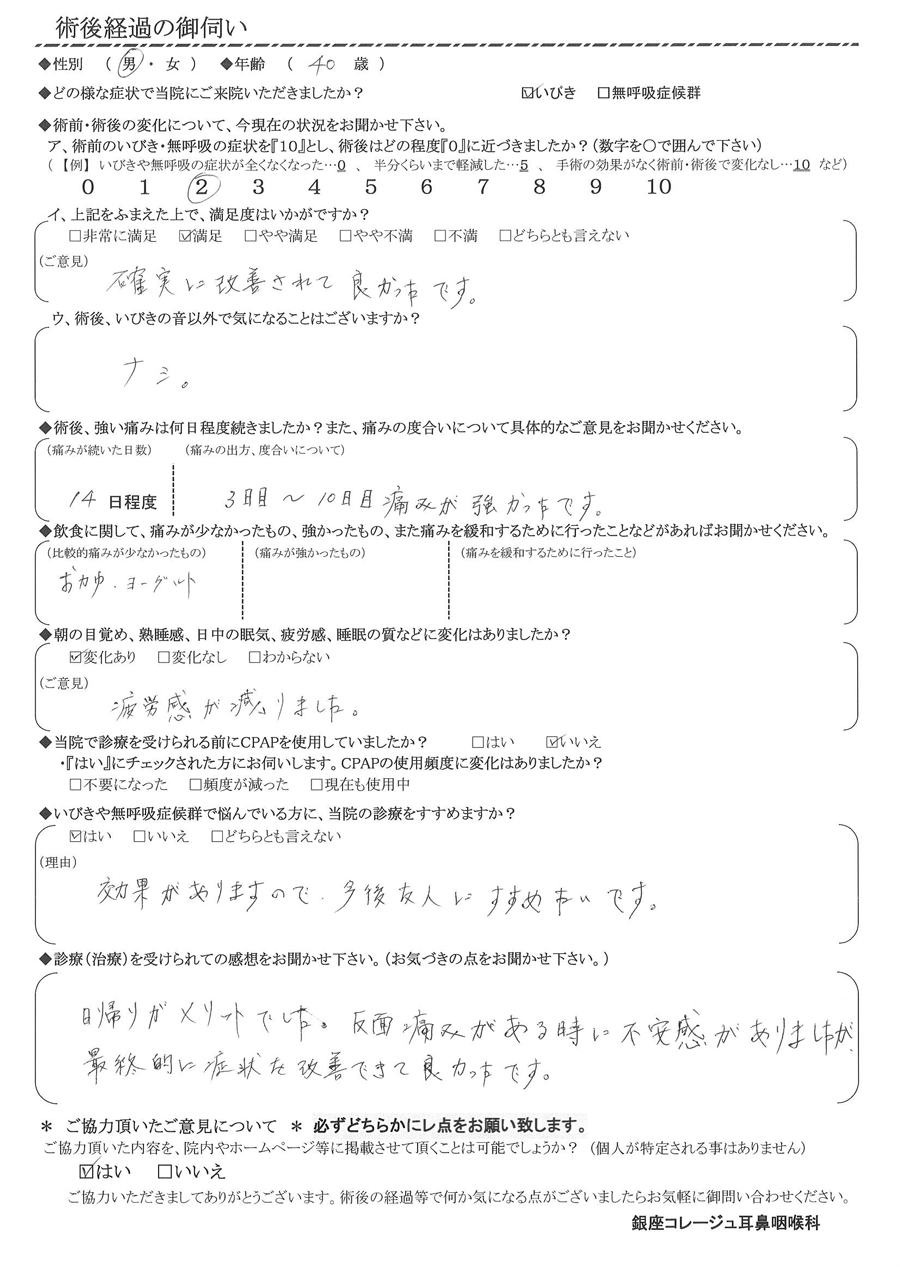 術後経過の御伺い
◆性別 ( 男 ・ 女 ) ◆年齢 ( 40 歳 )
◆どの様な症状で当院にご来院いただきましたか? ☑いびき □無呼吸症候群
◆術前・術後の変化について、今現在の状況をお聞かせ下さい。
ア、術前のいびき・無呼吸の症状を『10』とし、術後はどの程度『0』に近づきましたか?(数字を○で囲んで下さい)
(【例】 いびきや無呼吸の症状が全くなくなった…0 、 半分くらいまで軽減した…5 、 手術の効果がなく術前・術後で変化なし…10 など)
0 1 2 3 4 5 6 7 8 9 10
イ、上記をふまえた上で、満足度はいかがですか?
□非常に満足 ☑満足 □やや満足 □やや不満 □不満 □どちらとも言えない
(ご意見)
確実に改善されて良かったです。
ウ、術後、いびきの音以外で気になることはございますか?
ナシ。
◆術後、強い痛みは何日程度続きましたか?また、痛みの度合いについて具体的なご意見をお聞かせください。
(痛みが続いた日数) (痛みの出方、度合いについて)
14 日程度 3日目〜10日目痛みが強かったです。
◆飲食に関して、痛みが少なかったもの、強かったもの、また痛みを緩和するために行ったことなどがあればお聞かせください。
(比較的痛みが少なかったもの) (痛みが強かったもの) (痛みを緩和するために行ったこと)
おかゆ・ヨーグルト
◆朝の目覚め、熟睡感、日中の眠気、疲労感、睡眠の質などに変化はありましたか?
☑変化あり □変化なし □わからない
(ご意見)
疲労感が減りました。
◆当院で診療を受けられる前にCPAPを使用していましたか? □はい ☑いいえ
・『はい』にチェックされた方にお伺いします。CPAPの使用頻度に変化はありましたか?
□不要になった □頻度が減った □現在も使用中
◆いびきや無呼吸症候群で悩んでいる方に、当院の診療をすすめますか?
☑はい □いいえ □どちらとも言えない
(理由)
効果がありますので、今後友人にすすめたいです。
◆診療(治療)を受けられての感想をお聞かせ下さい。(お気づきの点をお聞かせ下さい。)
日帰りがメリットでした。反面痛みがある時に不安感がありましたが、
最終的に症状を改善できて良かったです。
* ご協力頂いたご意見について * 必ずどちらかにレ点をお願い致します。
ご協力頂いた内容を、院内やホームページ等に掲載させて頂くことは可能でしょうか? (個人が特定される事はありません)
☑はい □いいえ
ご協力いただきましてありがとうございます。術後の経過等で何か気になる点がございましたらお気軽に御問い合わせください。
銀座コレージュ耳鼻咽喉科